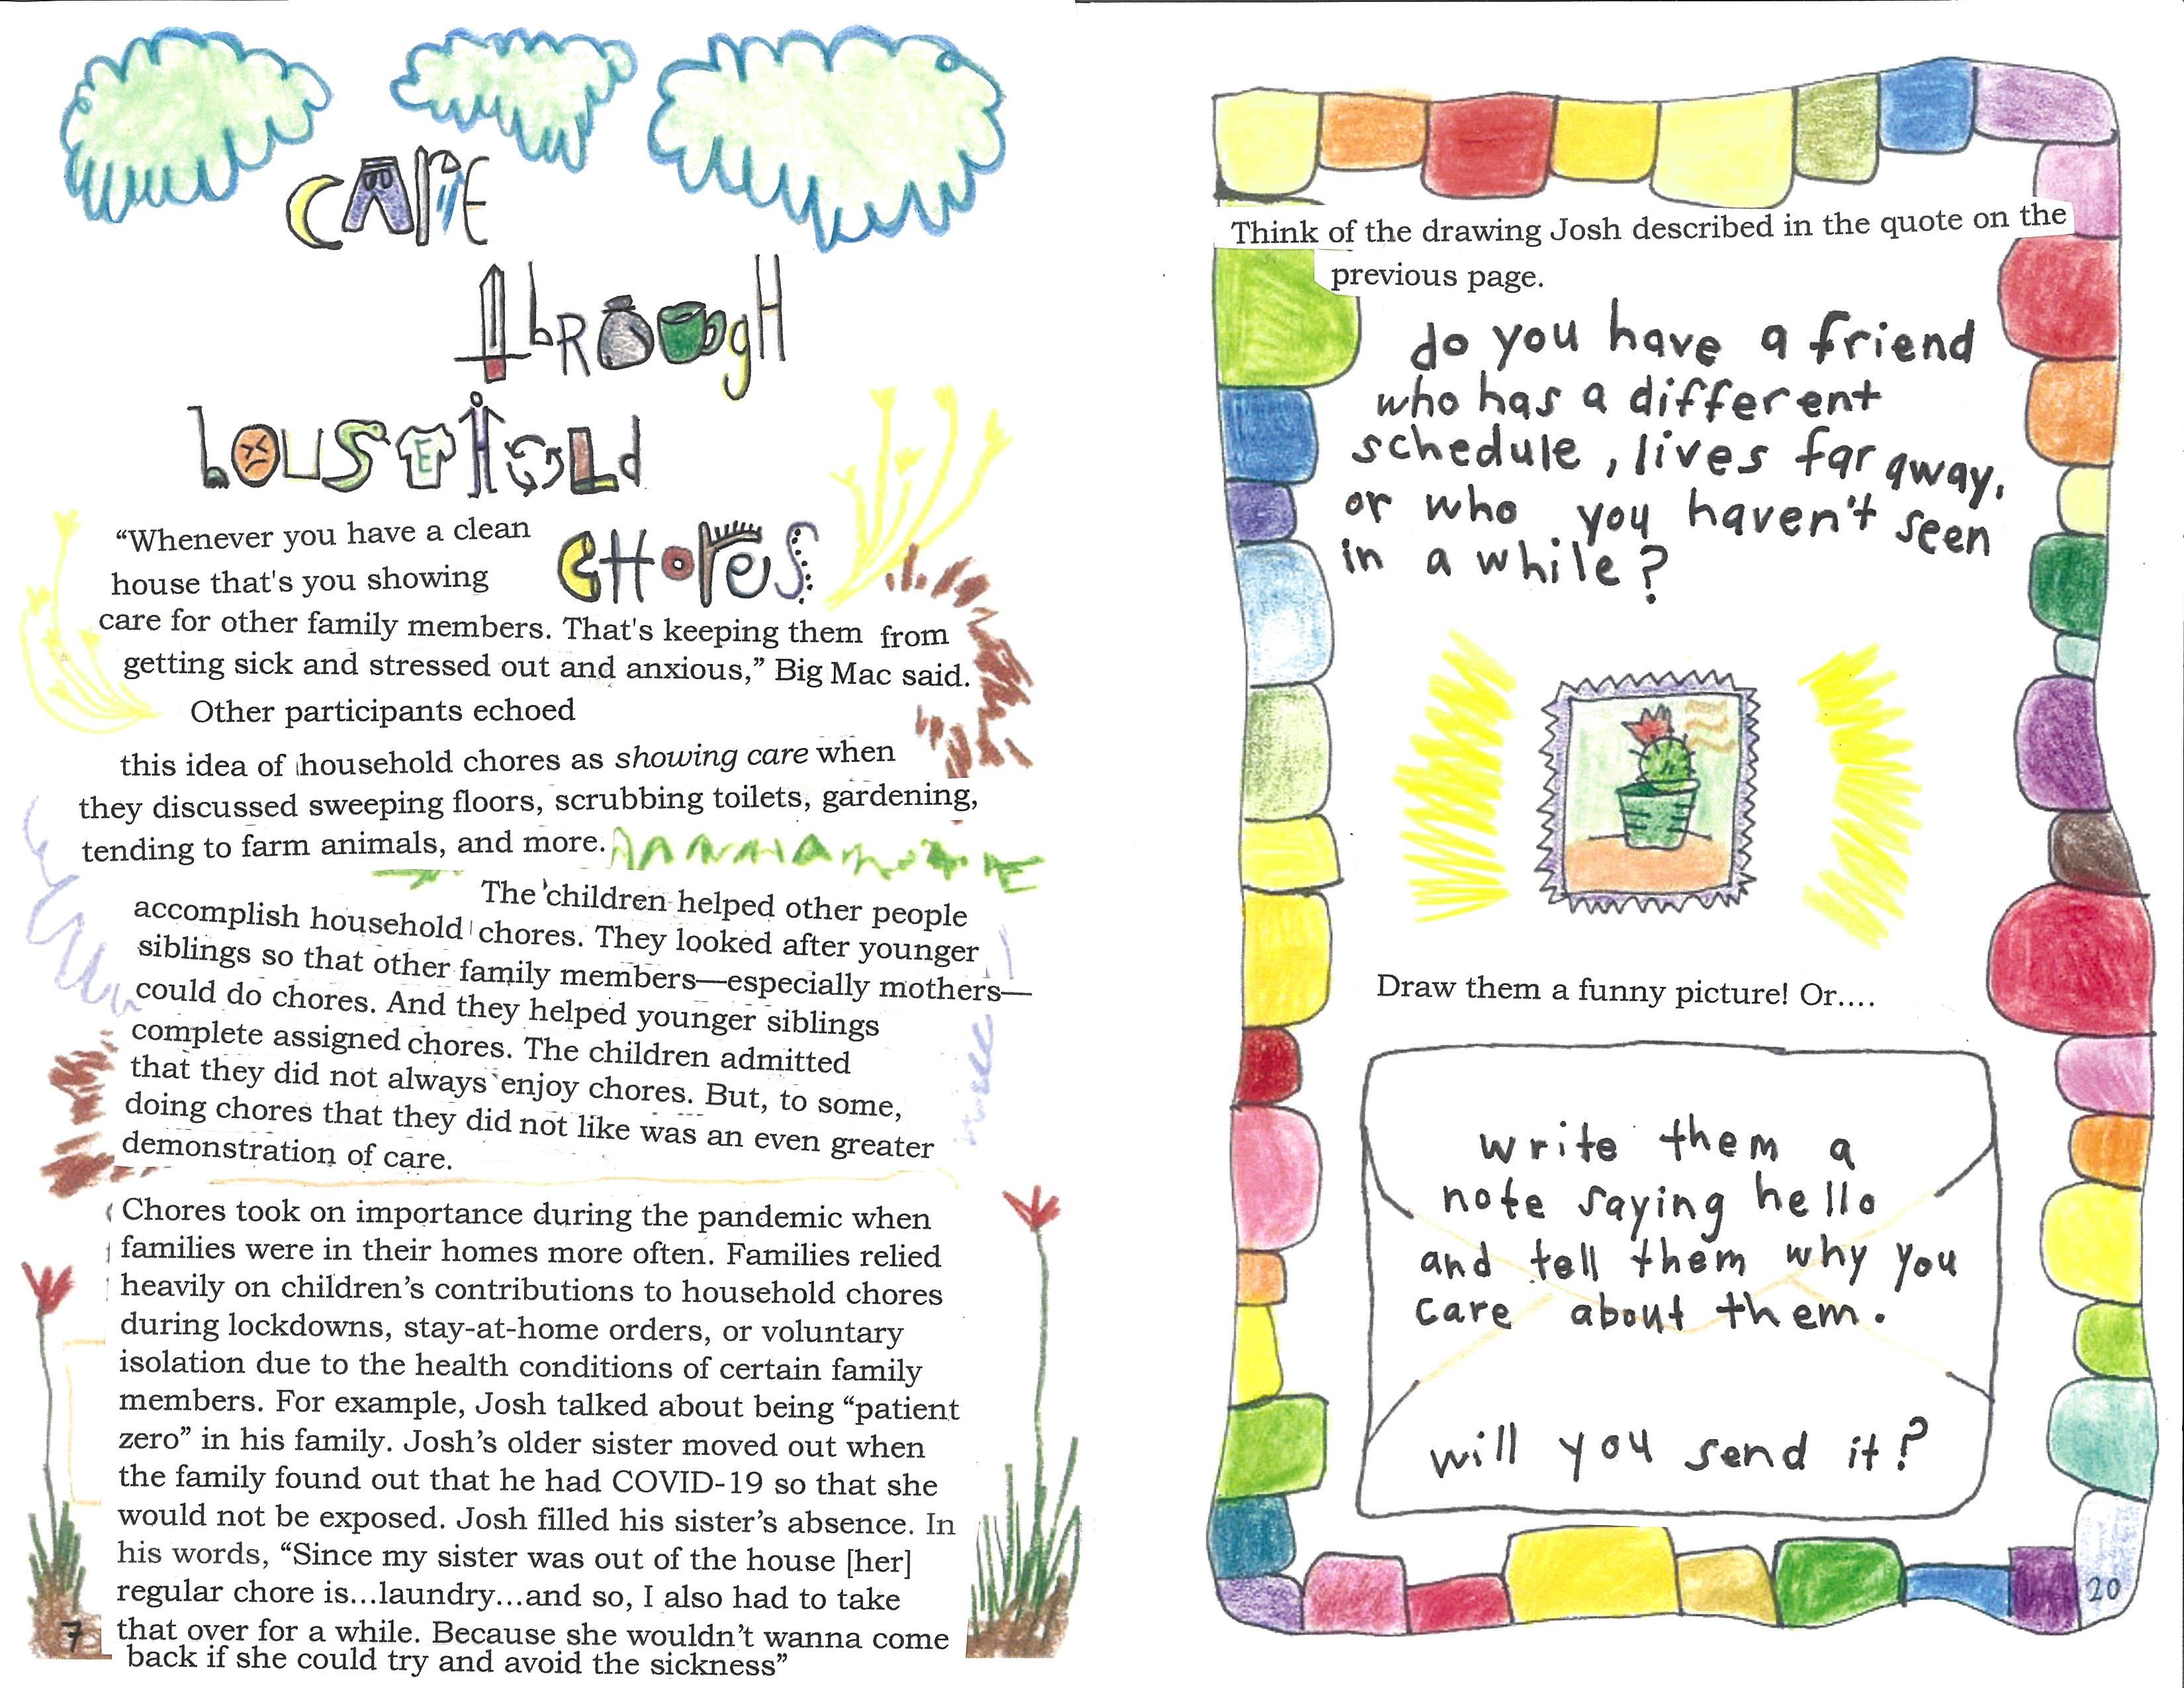 CARE
thROUgH
houSEHOLd
CHOreS
“Whenever you have a clean
house that's you showing
care for other family members. That's keeping them from
getting sick and stressed out and anxious,” Big Mac said.
Other participants echoed
this idea of household chores as showing care when
they discussed sweeping floors, scrubbing toilets, gardening,
tending to farm animals, and more.
The children helped other people
accomplish household chores. They looked after younger
siblings so that other family members—especially mothers—
could do chores. And they helped younger siblings
complete assigned chores. The children admitted
that they did not always enjoy chores. But, to some,
doing chores that they did not like was an even greater
demonstration of care.
Chores took on importance during the pandemic when
families were in their homes more often. Families relied
heavily on children’s contributions to household chores
during lockdowns, stay-at-home orders, or voluntary
isolation due to the health conditions of certain family
members. For example, Josh talked about being “patient
zero” in his family. Josh’s older sister moved out when
the family found out that he had COVID-19 so that she
would not be exposed. Josh filled his sister’s absence. In
his words, “Since my sister was out of the house [her]
regular chore is...laundry...and so, I also had to take
that over for a while. Because she wouldn’t wanna come
back if she could try and avoid the sickness”
7
Think of the drawing Josh described in the quote on the
previous page.
do you have a friend
who has a different
schedule, lives far away,
or who you haven't seen
in a while?
Draw them a funny picture! Or....
write them a
note saying hello
and tell them why you
care about them.
will you send it?
20